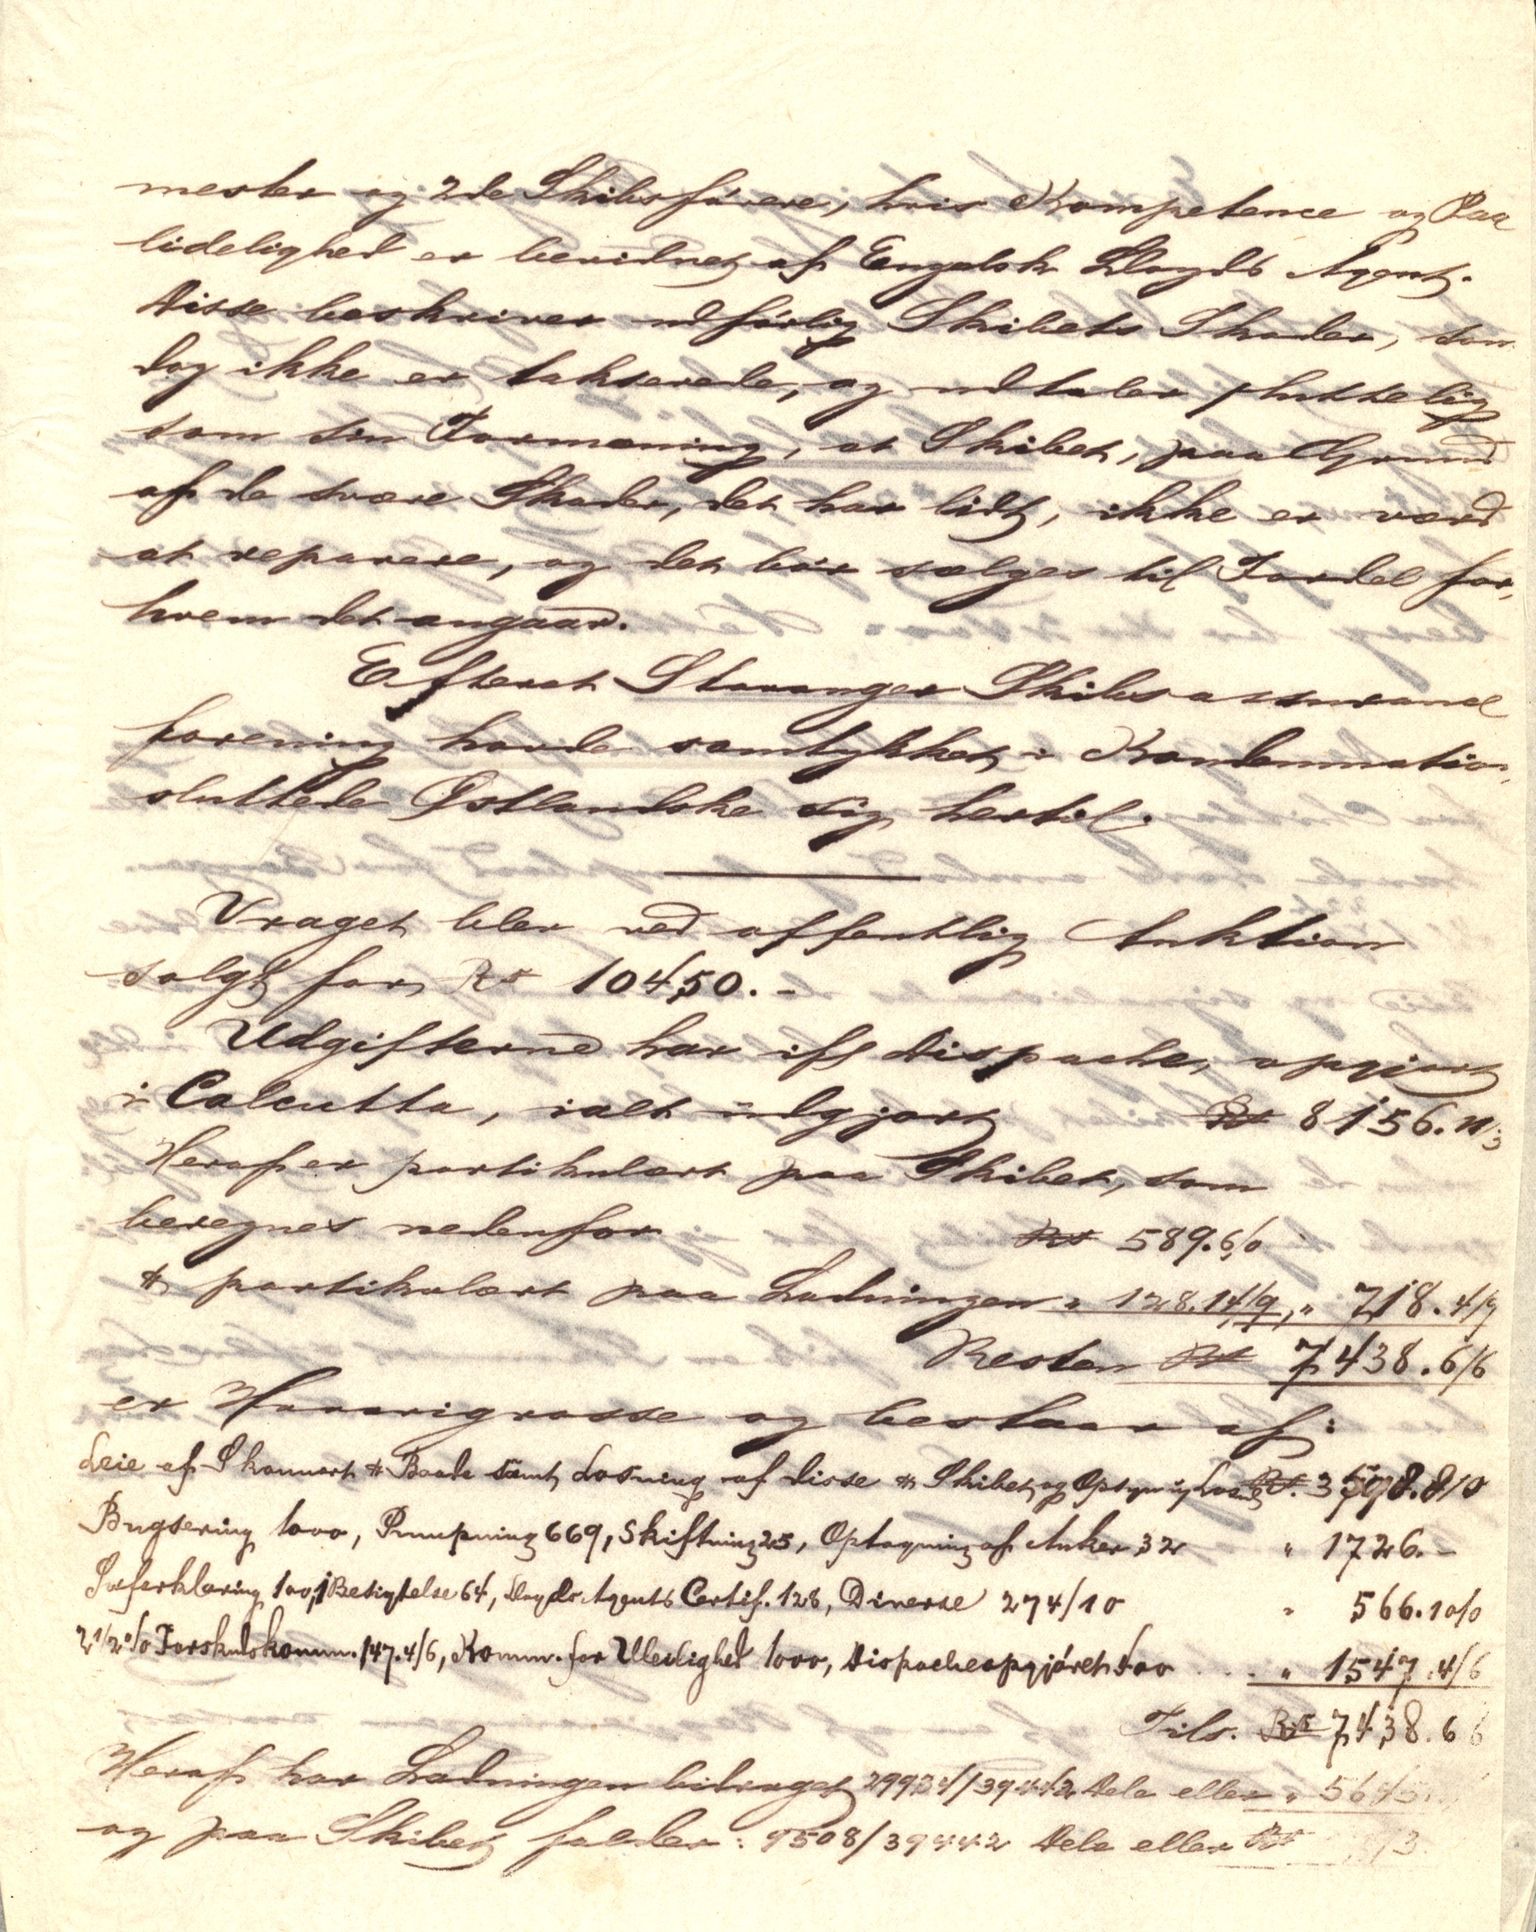 mester og 2de Skibsførere, hvis Kompetence og Paa
lidelighed er bevidnet af Engelsk Lloyds Agent.
Disse beskriver udførlig Skibets Skader, som
dog ikke er takserede, og udtaler sluttelig
som sin Formening, at Skibet, paa Grund
af de svære Skader, det har lidt, ikke er værd
at reparere, og det bør sælges til Fordel for,
hvem det angaar.
Efterat Stavanger Skibsassurance
forening havde samtykket i Kondemnation,
sluttede Østlandske sig hertil.
Vraget blev ved offentlig Auktion
solgt for Rs 10450.-
Udgifterne har ifl Dispache, opgjort
i Calcutta, ialt udgjort Rs 8156.11/3
Heraf er partikulært paa Skibet, som
beregnes nedenfor Rs 589.6/0
& partikulært paa Ladningen " 128.14/9, " 718.4/9
Resten Rs 7438.6/6
er Havarigrosse og bestaar af:
Leie af Skonnert & Baade samt Losning af disse & Skibet og Rs. 3598.8/0
Bugsering 1000, Pumpning 669, Skiftning 25, Optagning af Anker 32 " 1726.-
Søforklaring 100, Besigtelse 64, Lloyds Agents Certif. 128, Diverse 274/10 " 566.10/0
2 1/2 % Forskudskomm. 147.4/6, Komm. for Uleilighed 1000, Dispacheopgjøret 400 .... " 1547.4/6
Tils. Rs 7438.6 6
Heraf har Ladningen bidraget 29934/39442 Dele eller "
og paa Skibet falder: 9508/39442 Dele eller Rs